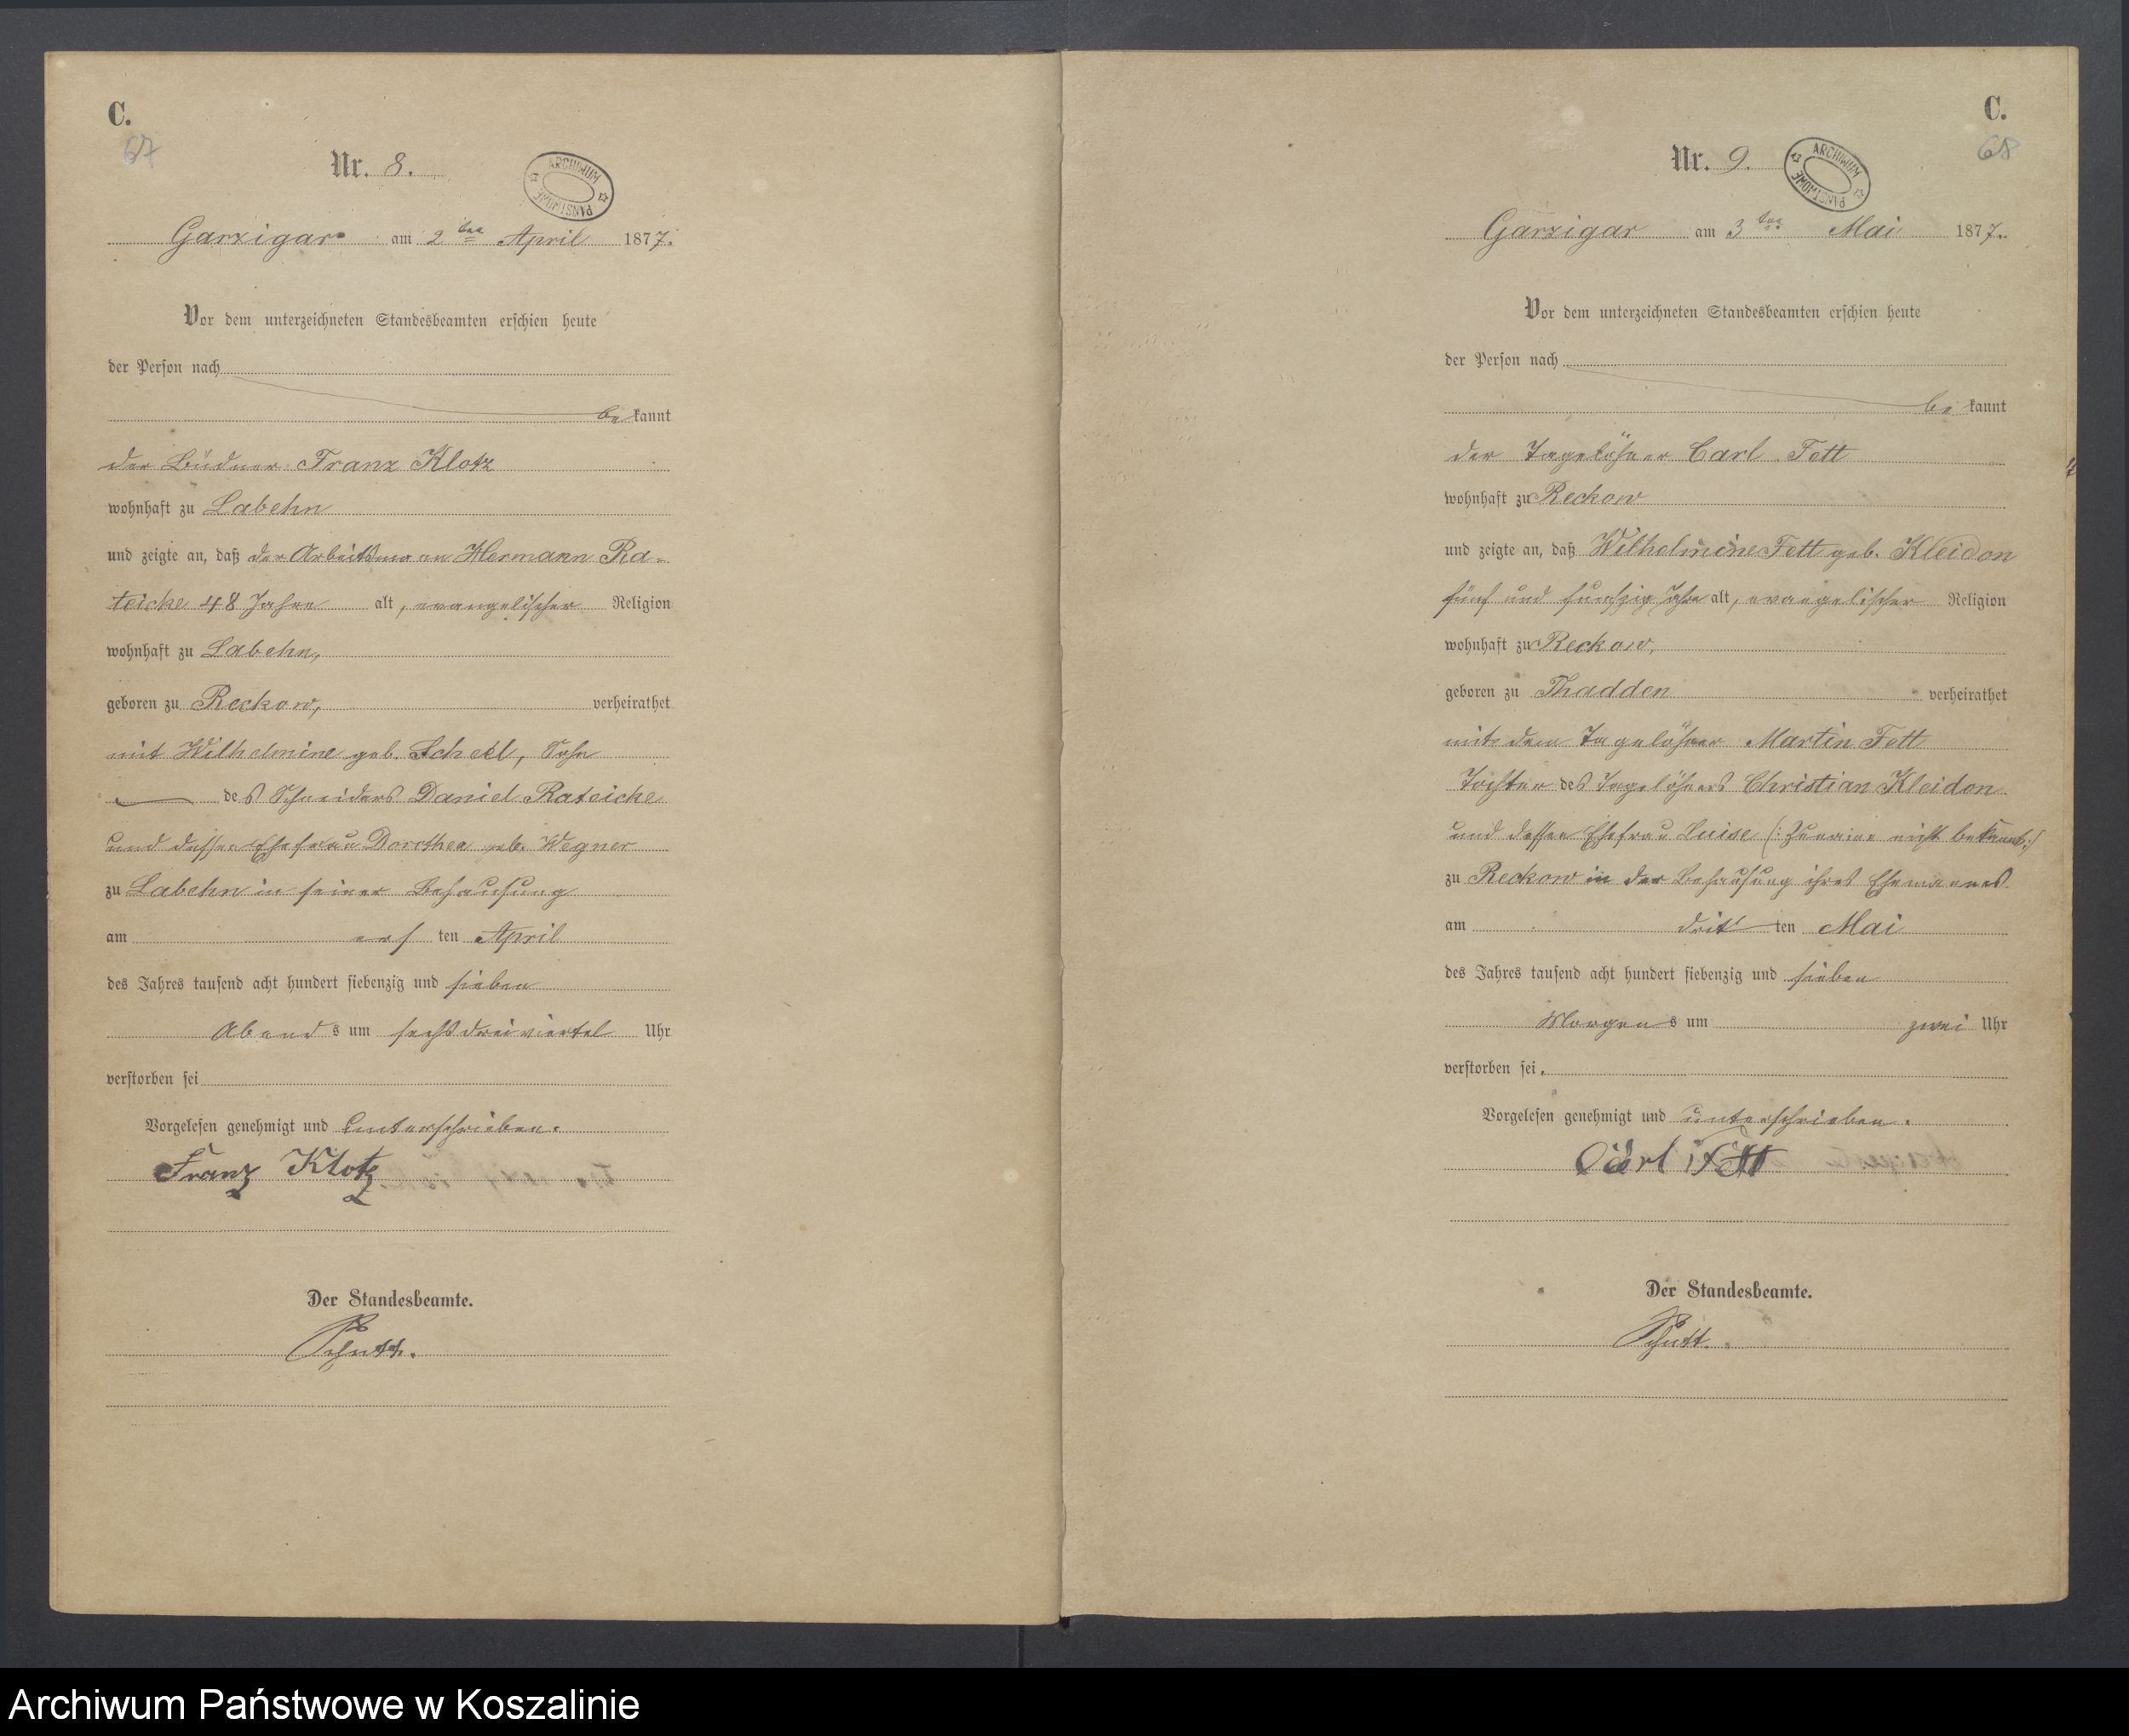 C.
67
Nr. 8.
ARCHIWUM PAŃSTWOWE
Garzigar am 2ten April 1877.
Vor dem unterzeichneten Standesbeamten erschien heute
der Person nach
be kannt
der Büdner Franz Klotz
wohnhaft zu Labehn
und zeigte an, daß der Arbeitsmann Hermann Ra-
teicke 48 Jahre alt, evangelischer Religion
wohnhaft zu Labehn,
geboren zu Reckow, verheirathet
mit Wilhelmine geb. Scheel, Sohn
des Schneiders Daniel Rateicke
und dessen Ehefrau Dorothea geb. Wegner
zu Labehn in seiner Behausung
am ers ten April
des Jahres tausend acht hundert siebenzig und sieben
Abends um sechs dreiviertel Uhr
verstorben sei
Vorgelesen genehmigt und unterschrieben.
Franz Klotz
Der Standesbeamte.
Schutt.
C.
68
Nr. 9.
ARCHIWUM PAŃSTWOWE
Garzigar am 3ten Mai 1877.
Vor dem unterzeichneten Standesbeamten erschien heute
der Person nach
be kannt
der Tagelöhner Carl Fett
wohnhaft zu Reckow
und zeigte an, daß Wilhelmine Fett geb. Kleidon
fünf und funfzig Jahre alt, evangelischer Religion
wohnhaft zu Reckow,
geboren zu Thadden verheirathet
mit dem Tagelöhner Martin Fett
Tochter des Tagelöhners Christian Kleidon
und dessen Ehefrau Luise (: Zuname nicht bekannt :)
zu Reckow in der Behausung ihres Ehemannes
am drit ten Mai
des Jahres tausend acht hundert siebenzig und sieben
Morgens um zwei Uhr
verstorben sei.
Vorgelesen genehmigt und unterschrieben.
Carl Fett
Der Standesbeamte.
Schutt.
Archiwum Państwowe w Koszalinie